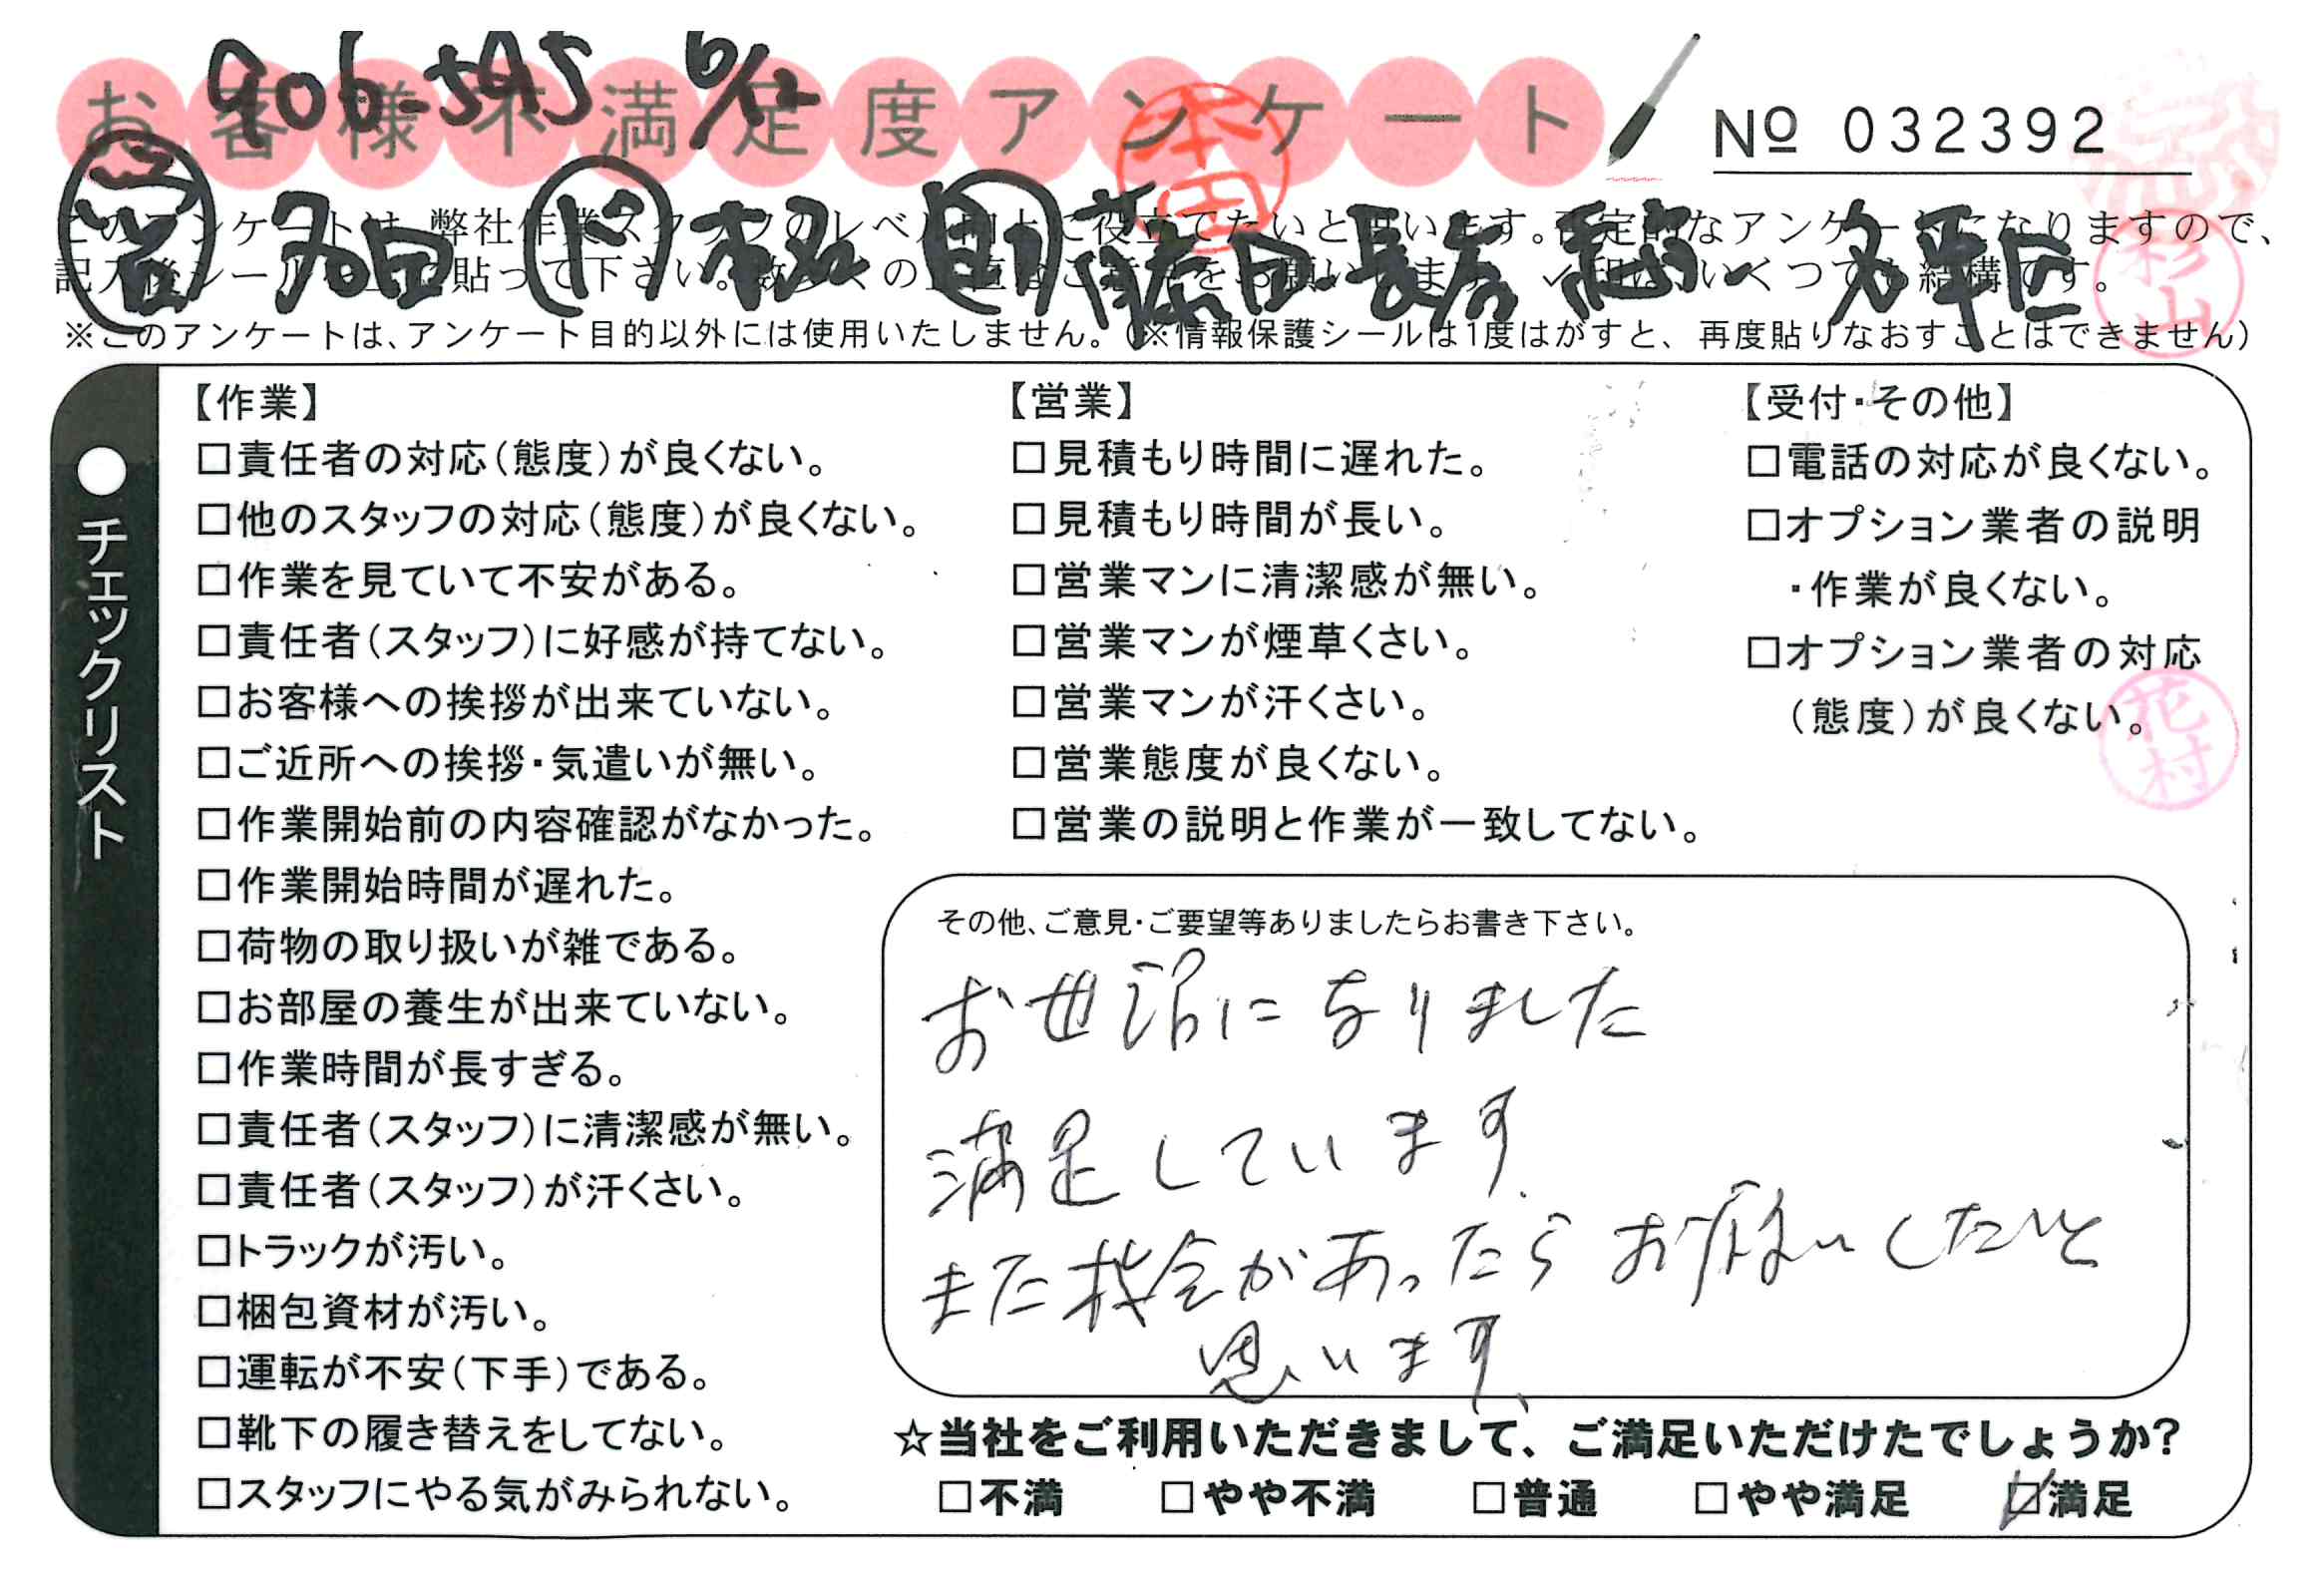 906-595 6/12
お客様不満足度アンケート
本田
Nº 032392
このアンケートは、弊社作業スタッフのレベル向上に役立てたいと思います。否定的なアンケートになりますので、
記入後シールを上に貼って下さい。数多くの正直なご意見をお願いします。✓印は、いくつでも結構です。
営 多田 ド 本松 助 藤田・長谷
杉山
※このアンケートは、アンケート目的以外には使用いたしません。(※情報保護シールは1度はがすと、再度貼りなおすことはできません)
●チェックリスト
【作業】
□責任者の対応(態度)が良くない。
□他のスタッフの対応(態度)が良くない。
□作業を見ていて不安がある。
□責任者(スタッフ)に好感が持てない。
□お客様への挨拶が出来ていない。
□ご近所への挨拶・気遣いが無い。
□作業開始前の内容確認がなかった。
□作業開始時間が遅れた。
□荷物の取り扱いが雑である。
□お部屋の養生が出来ていない。
□作業時間が長すぎる。
□責任者(スタッフ)に清潔感が無い。
□責任者(スタッフ)が汗くさい。
□トラックが汚い。
□梱包資材が汚い。
□運転が不安(下手)である。
□靴下の履き替えをしてない。
□スタッフにやる気がみられない。
【営業】
□見積もり時間に遅れた。
□見積もり時間が長い。
□営業マンに清潔感が無い。
□営業マンが煙草くさい。
□営業マンが汗くさい。
□営業態度が良くない。
□営業の説明と作業が一致してない。
【受付・その他】
□電話の対応が良くない。
□オプション業者の説明
・作業が良くない。
□オプション業者の対応
(態度)が良くない。
花村
その他、ご意見・ご要望等ありましたらお書き下さい。
お世話になりました
満足しています.
また機会があったらお願いしたいと
思います、
☆当社をご利用いただきまして、ご満足いただけたでしょうか?
□不満 □やや不満 □普通 □やや満足 ☑満足